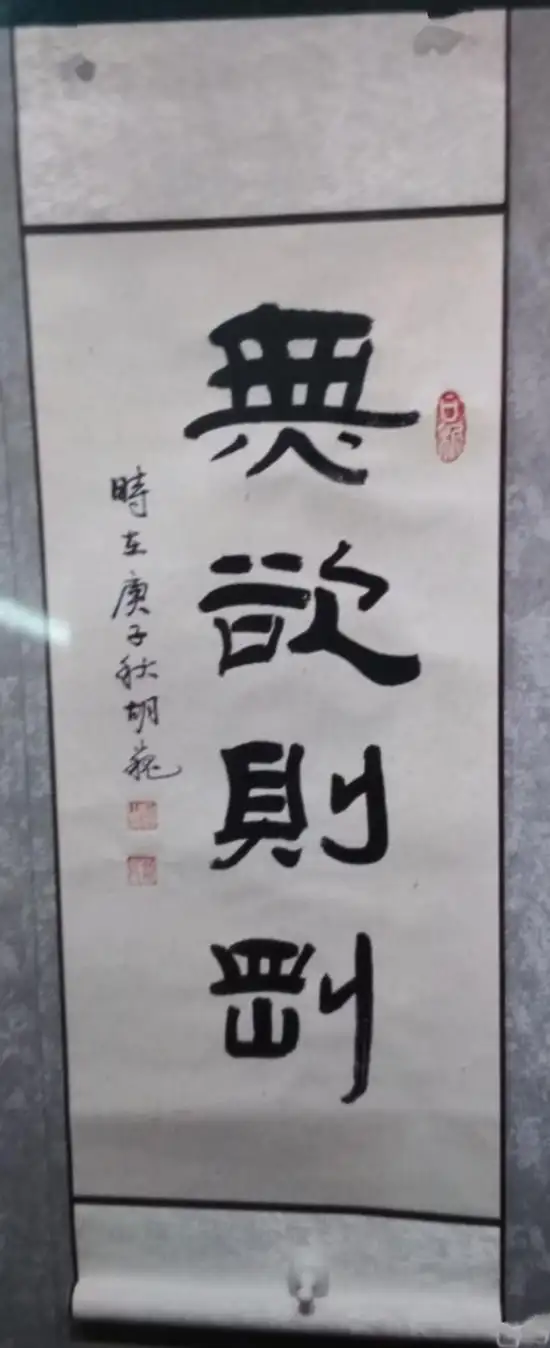 無欲則剛
時在庚子秋胡